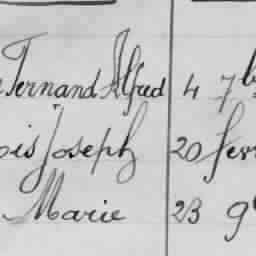 Fernand Alfred 4 7b
ois Joseph 20 fevr
Marie 23 9b